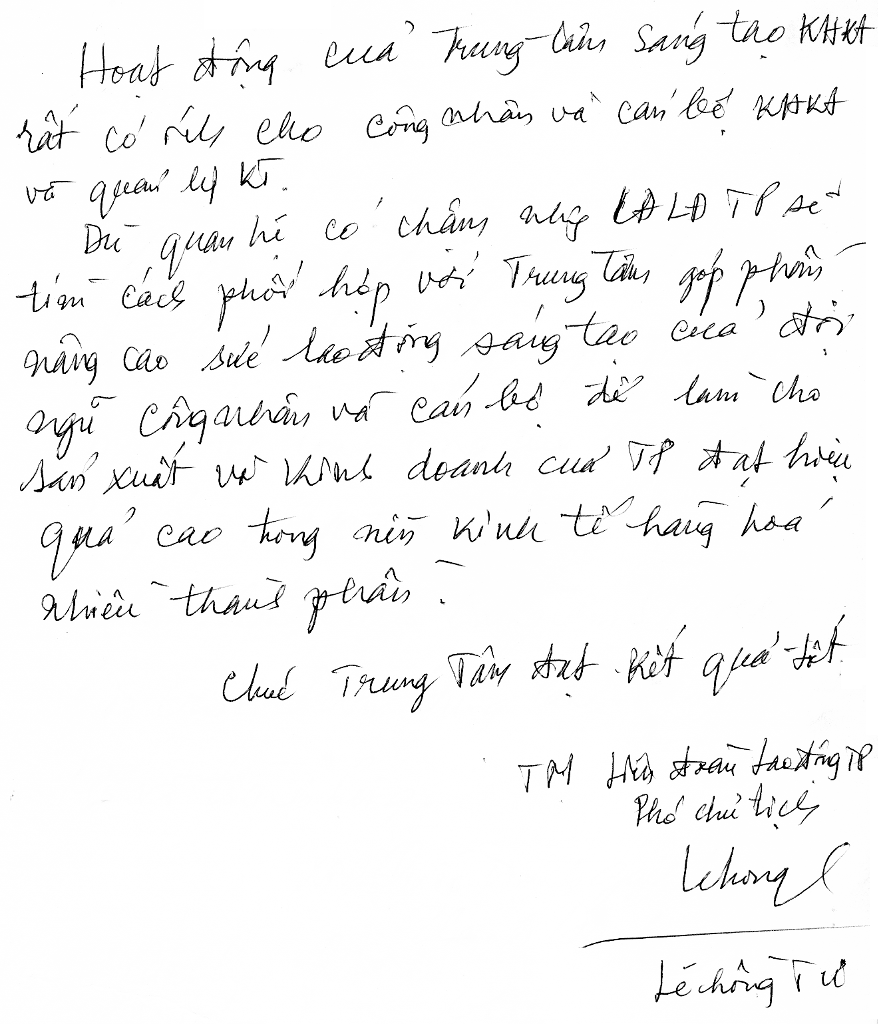 Hoạt động của Trung tâm sáng tạo KHKT
rất có ích cho công nhân và cán bộ KHKT
và quản lý KT.
Dù quan hệ có chậm nhưng LĐLĐ TP sẽ
tìm cách phối hợp với Trung Tâm góp phần
nâng cao sức lao động sáng tạo của đội
ngũ công nhân và cán bộ để làm cho
sản xuất và kinh doanh của TP đạt hiệu
quả cao trong nền kinh tế hàng hoá
nhiều thành phần.
Chúc Trung Tâm đạt kết quả tốt
TM Liên đoàn Lao động TP
Phó chủ tịch
Lê hồng Tư